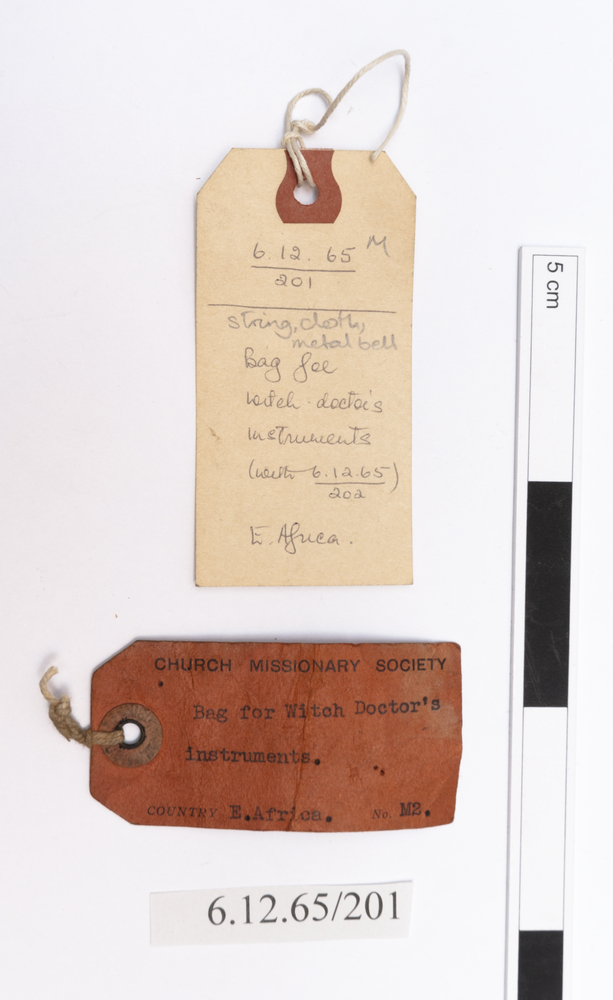 6.12.65 M
201
string, cloth,
metal bell
Bag for
witch-doctor's
instruments
(with 6.12.65)
202
E. Africa.
5 cm
CHURCH MISSIONARY SOCIETY
Bag for Witch Doctor's
instruments.
COUNTRY E.Africa. No. M2.
6.12.65/201